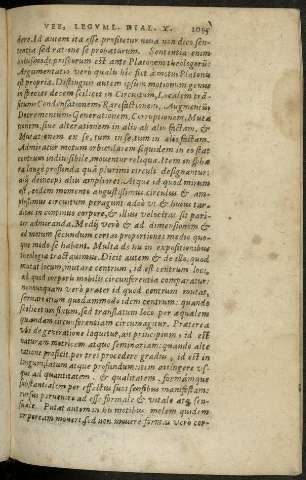 VEL LEGVML. DIAL. X.
dere. Id autem ita esse profitetur non dico sen-
tentia sed ratione se probaturum. Sententia enim
priscorum est ante Platonem theologorũ:
Argumentatio vero qualis hic sit admodũ Platonis
est propria. Distinguit autem ipsum motionum genus
in species decem scilicet in Circuitum,
sitũ Condensationem, Rarefactionem, Augmentũ
Decrementum Generationem, Corruptionem, Muta
tionem, siue alterationem in alio ab alio factam, &
Mutationem in se, tum in se tum in alio factam.
Admiratur motum orbicularem siquidem in eo stat
centrum indiuisibile, mouentur reliqua. Item in sphæ
ra longe profunda quã plurimi circuli designantur:
alij deinceps alijs ampliores. Atque id quod mirum
est, eodem momento angustissimus circulus & am-
plissimus circuitum peragunt adeò vt & huius tar-
ditas in continuo corpore, & illius velocitas sit pari-
ter admiranda. Medij verò & ad dimensionem &
ad motum secundum certas proportiones medio quo-
que modo se habent. Multa de hu in expositionibus
theologia tractauimus. Dicit autem & de illo, quod
mutat locum, mutare centrum, id est centrum loci,
ad quod corporis mobilis circunferentia comparatur:
nonnunquam verò præter id quod centrum mutat,
seruare etiam quodammodo idem centrum: quando
scilicet vox fixum, sed translatum loco per æqualem
quandam circunferentiam circumagitur. Præterea
vbi de generatione loquitur, an principium, id est
naturam motricem atque seminariam: quando alte
ratione proficit per tres procedere gradus, id est in
longum, latum atque profundum: item attingere vs-
que ad quantitatem & qualitatem, formamque
substantialem per esse: rursus sensibus manifestam:
rursus peruenire ad esse formale & vitale atq; sen-
suale. Putat autem in his motibus molem quidem
corpoream moueri, sed non mouere formas verò cor-